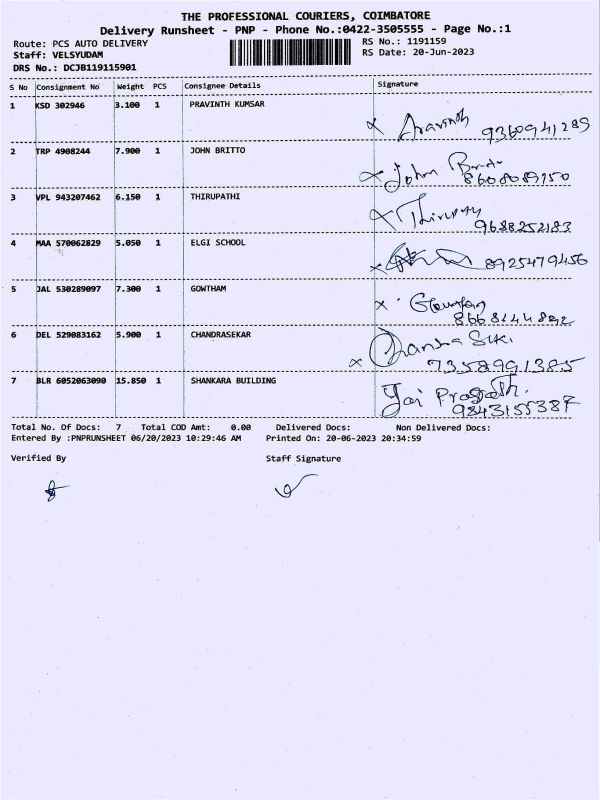 THE PROFESSIONAL COURIERS, COIMBATORE
Delivery Runsheet - PNP - Phone No.:0422-3505555 - Page No.:1
Route: PCS AUTO DELIVERY
RS No.: 1191159
Staff: VELSYUDAM
RS Date: 20-Jun-2023
DRS No.: DCJB119115901
S No Consignment No Weight PCS Consignee Details Signature
1 KSD 302946 3.100 1 PRAVINTH KUMSAR
Aravinth 9360941289
2 TRP 4908244 7.900 1 JOHN BRITTO
John Britto
8608089150
3 VPL 943207462 6.150 1 THIRUPATHI
9688252183
4 MAA 570062829 5.050 1 ELGI SCHOOL
8925479456
5 JAL 530289097 7.300 1 GOWTHAM
6 DEL 529083162 5.900 1 CHANDRASEKAR
7358991385
7 BLR 6052063090 15.850 1 SHANKARA BUILDING
Jai Prasath.
9843155387
Total No. Of Docs: 7 Total COD Amt: 0.00 Delivered Docs: Non Delivered Docs:
Entered By :PNPRUNSHEET 06/20/2023 10:29:46 AM Printed On: 20-06-2023 20:34:59
Verified By Staff Signature